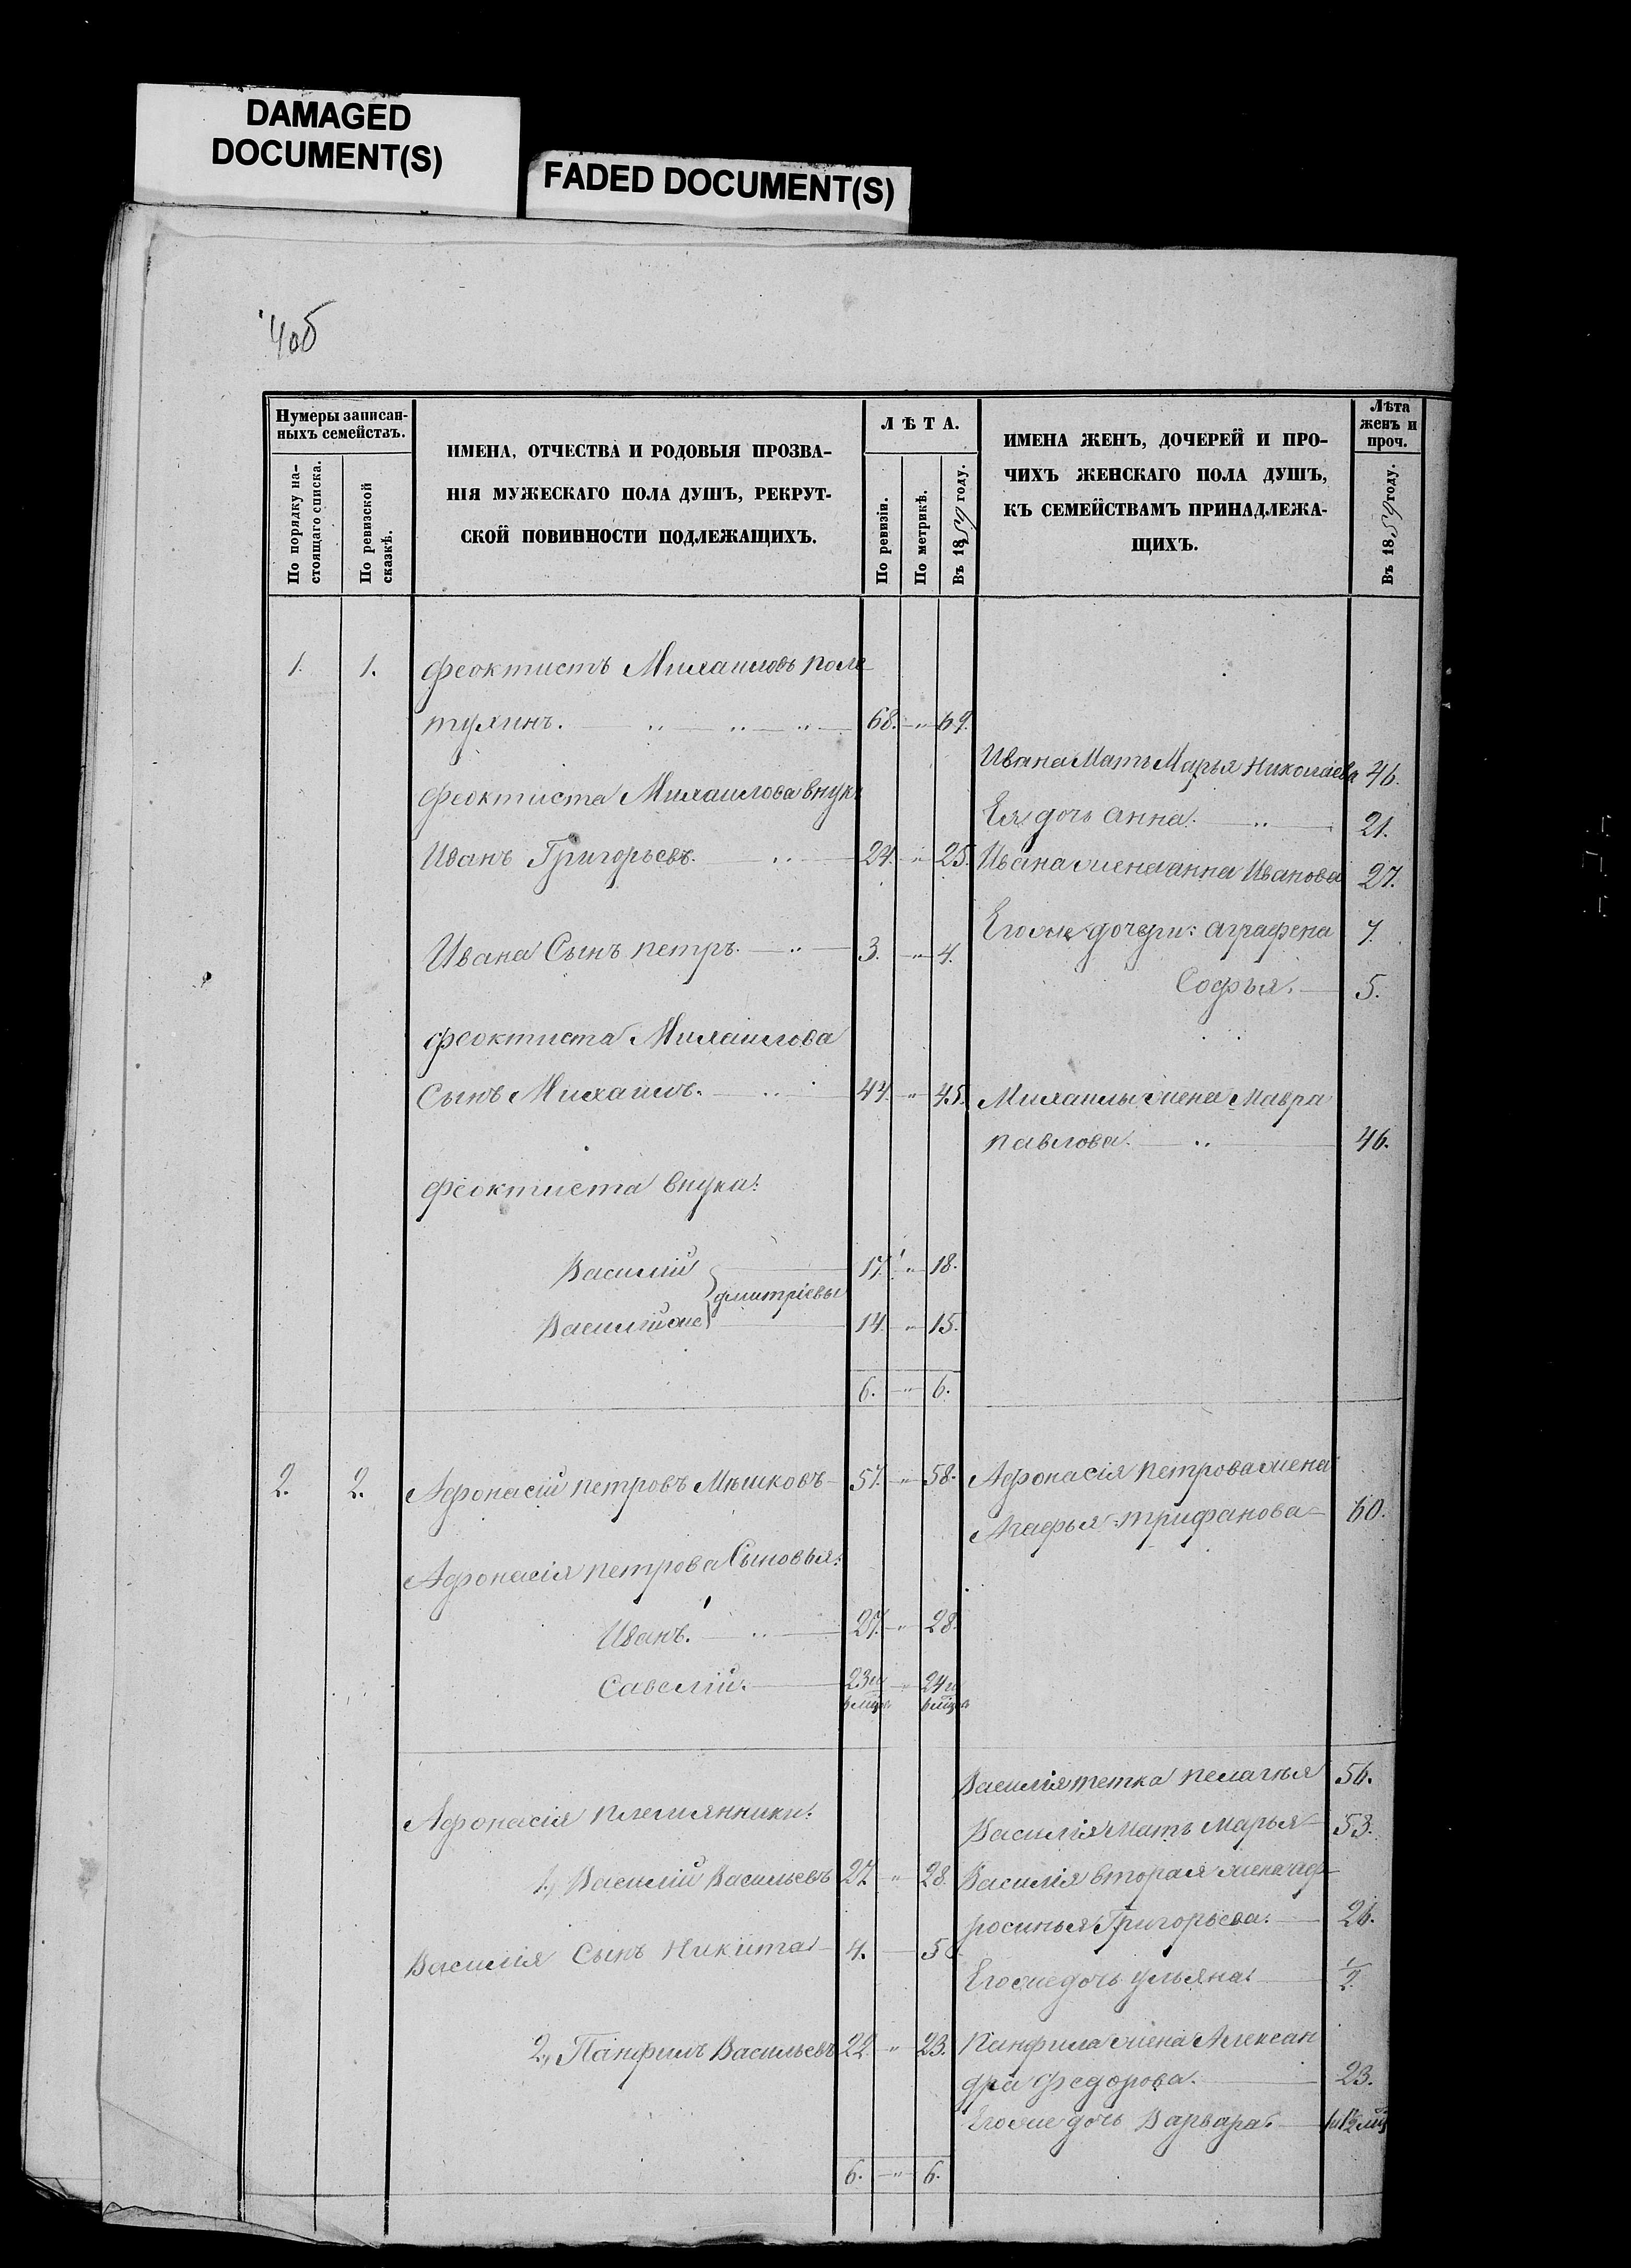 DAMAGED
DOCUMENT(S)
FADED DOCUMENT(S)
4об
Нумеры записан-
ныхъ семействъ.
По порядку на-
стоящаго списка.
По ревизской
сказкѣ.
ИМЕНА, ОТЧЕСТВА И РОДОВЫЯ ПРОЗВА-
НІЯ МУЖЕСКАГО ПОЛА ДУШЪ, РЕКРУТ-
СКОЙ ПОВИННОСТИ ПОДЛЕЖАЩИХЪ.
ЛѢТА.
По ревизіи.
По метрикѣ.
Въ 1859 году.
ИМЕНА ЖЕНЪ, ДОЧЕРЕЙ И ПРО-
ЧИХЪ ЖЕНСКАГО ПОЛА ДУШЪ,
КЪ СЕМЕЙСТВАМЪ ПРИНАДЛЕЖА-
ЩИХЪ.
Лѣта
женъ и
проч.
Въ 1859 году.
1. 1. Феоктистъ Михаиловъ Поле
тухинъ. 68. " 69.
Ивана Мать Марья Николаева 46.
Феоктиста Михаилова внукъ
Ея дочь Анна. 21.
Иванъ Григорьевъ. 24. " 25. Ивана жена анна Иванова 27.
Егоже дочери: аграфена 7.
Ивана Сынъ петръ. 3. " 4.
Софья. 5.
Феоктиста Михаилова
Сынъ Михаилъ. 44. " 45. Михаилы жена Мавра
павлова. 46.
Феоктиста внуки:
Василій 17. " 18.
дмитріевы
Василій же 14. " 15.
6. " 6.
2. 2. Афонасій петровъ Мѣшковъ 57. " 58. Афонасія петрова жена
Агафья трифанова 60.
Афонасія петрова Сыновья:
Иванъ. 27. " 28.
Савелій. 23 и " 24 и
Василія тетка пелагѣя 56.
Афонасія племянники:
Василія Мать Марья 53.
1., Василій Васильевъ 27 " 28. Василія вторая жена аф-
росинья Григорьева. 26.
Василія Сынъ Никита 4. 5
Егоже дочь ульяна. 1/2.
2., Панфилъ Васильевъ 22. " 23. Панфила жена Алексан
дра Федорова. 23.
Егоже дочь Варвара.
6. " 6.